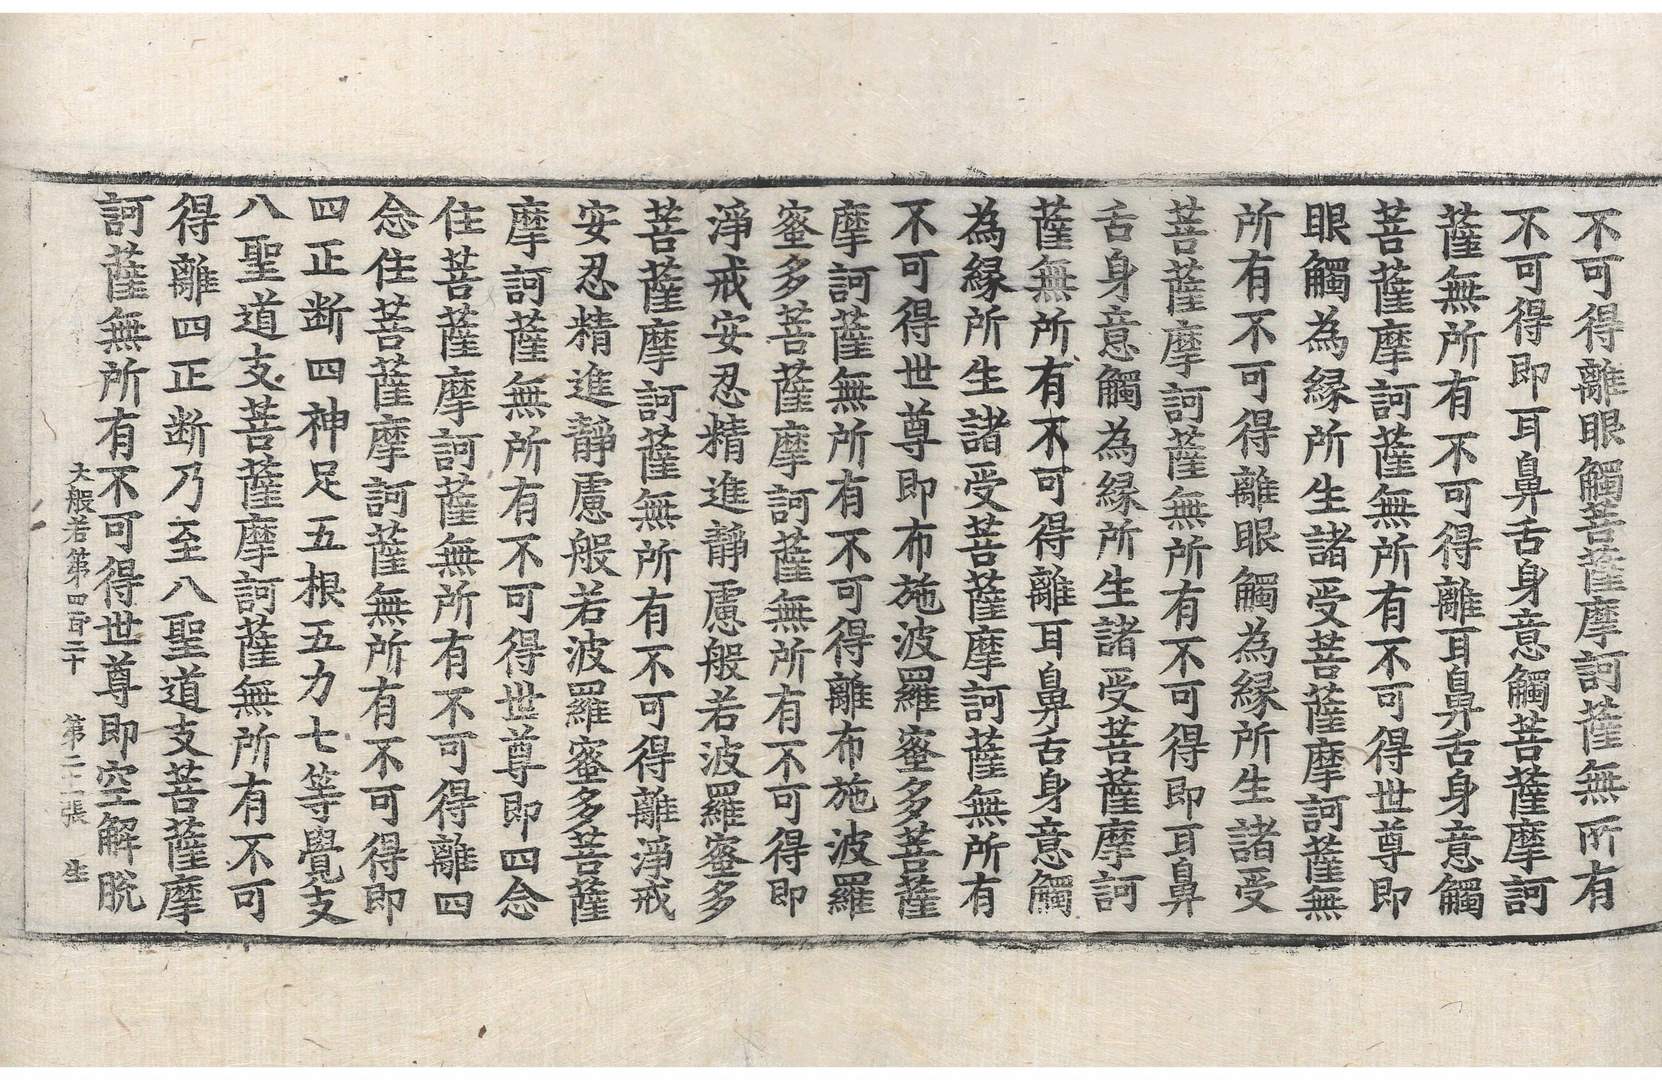 不可得離眼觸菩薩摩訶薩無所有
不可得即耳鼻舌身意觸菩薩摩訶
薩無所有不可得離耳鼻舌身意觸
菩薩摩訶薩無所有不可得世尊即
眼觸為縁所生諸受菩薩摩訶薩無
所有不可得離眼觸為縁所生諸受
菩薩摩訶薩無所有不可得即耳鼻
舌身意觸為縁所生諸受菩薩摩訶
薩無所有不可得離耳鼻舌身意觸
為縁所生諸受菩薩摩訶薩無所有
不可得世尊即布施波羅蜜多菩薩
摩訶薩無所有不可得離布施波羅
蜜多菩薩摩訶薩無所有不可得即
淨戒安忍精進靜慮般若波羅蜜多
菩薩摩訶薩無所有不可得離淨戒
安忍精進靜慮般若波羅蜜多菩薩
摩訶薩無所有不可得世尊即四念
住菩薩摩訶薩無所有不可得離四
念住菩薩摩訶薩無所有不可得即
四正断四神足五根五力七等覺支
八聖道支菩薩摩訶薩無所有不可
得離四正断乃至八聖道支菩薩摩
訶薩無所有不可得世尊即空解脫
大般若第四百二十 第二十張 生